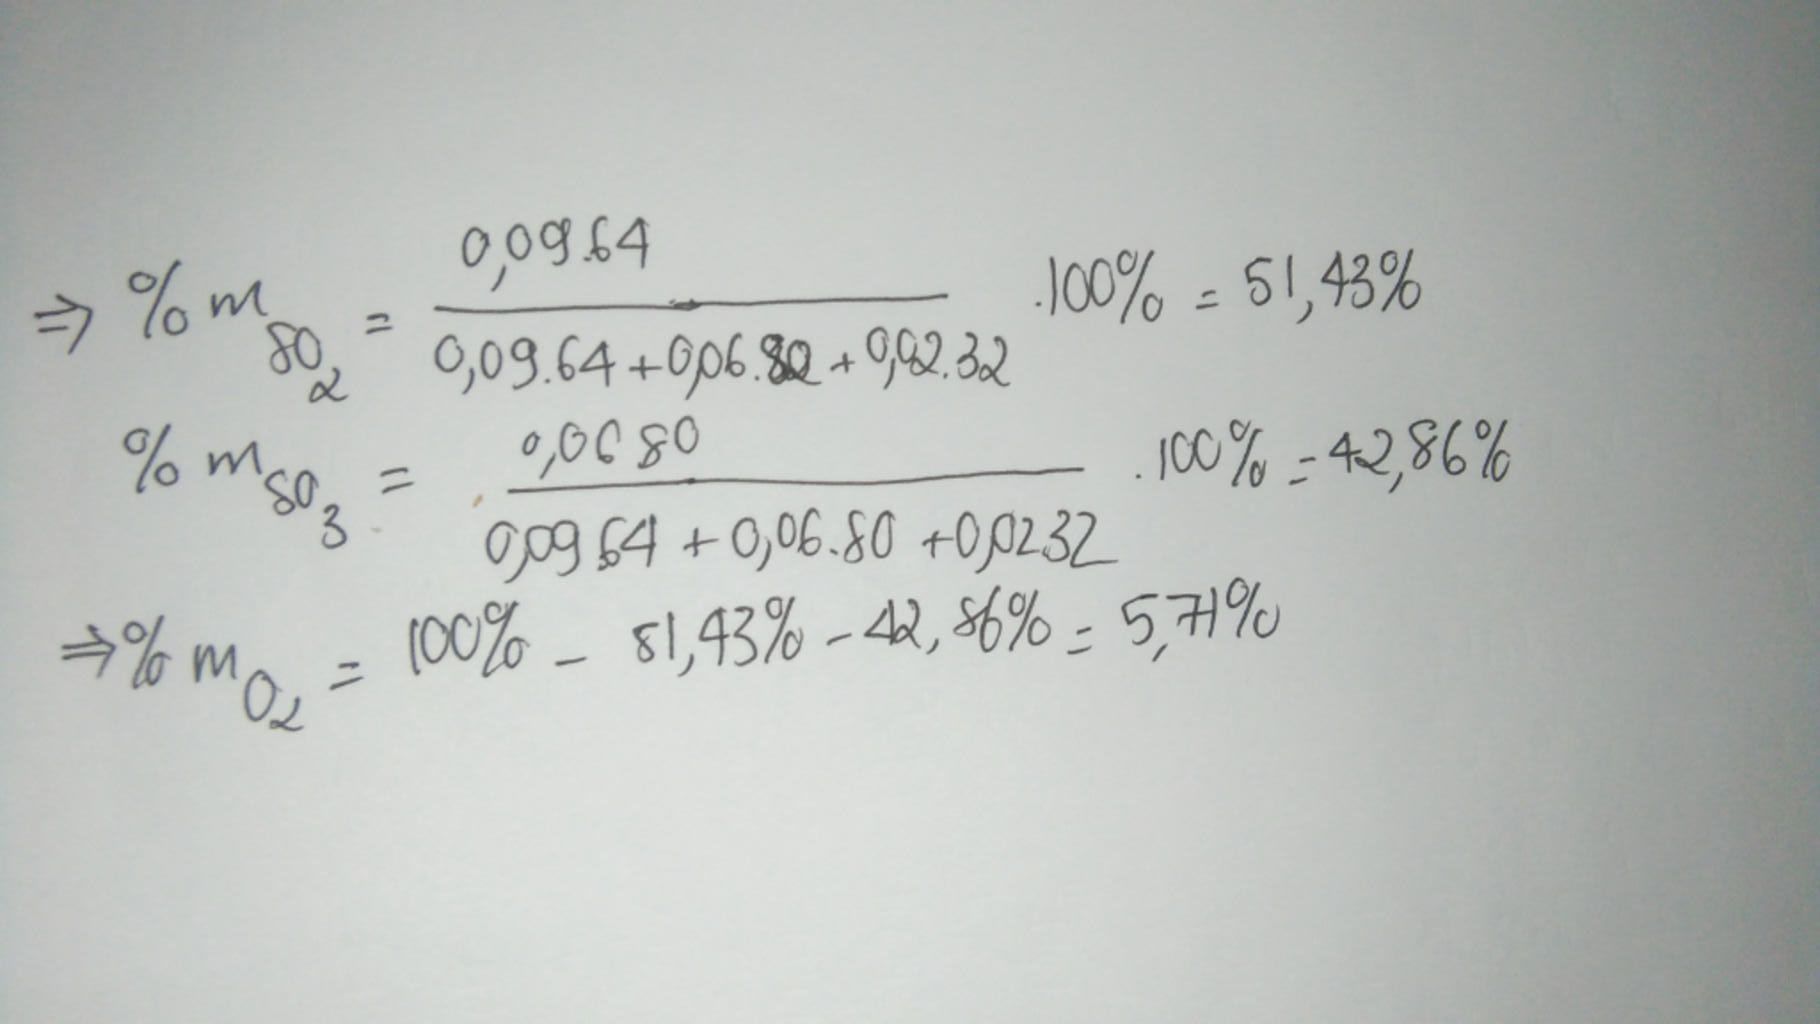 ⇒ % m SO2 = 0,09.64 / 0,09.64 + 0,06.80 + 0,02.32 .100% = 51,43%
% m SO3 = 0,06 80 / 0,09 64 + 0,06.80 + 0,02 32 .100% = 42,86%
⇒ % m O2 = 100% - 51,43% - 42,86% = 5,71%